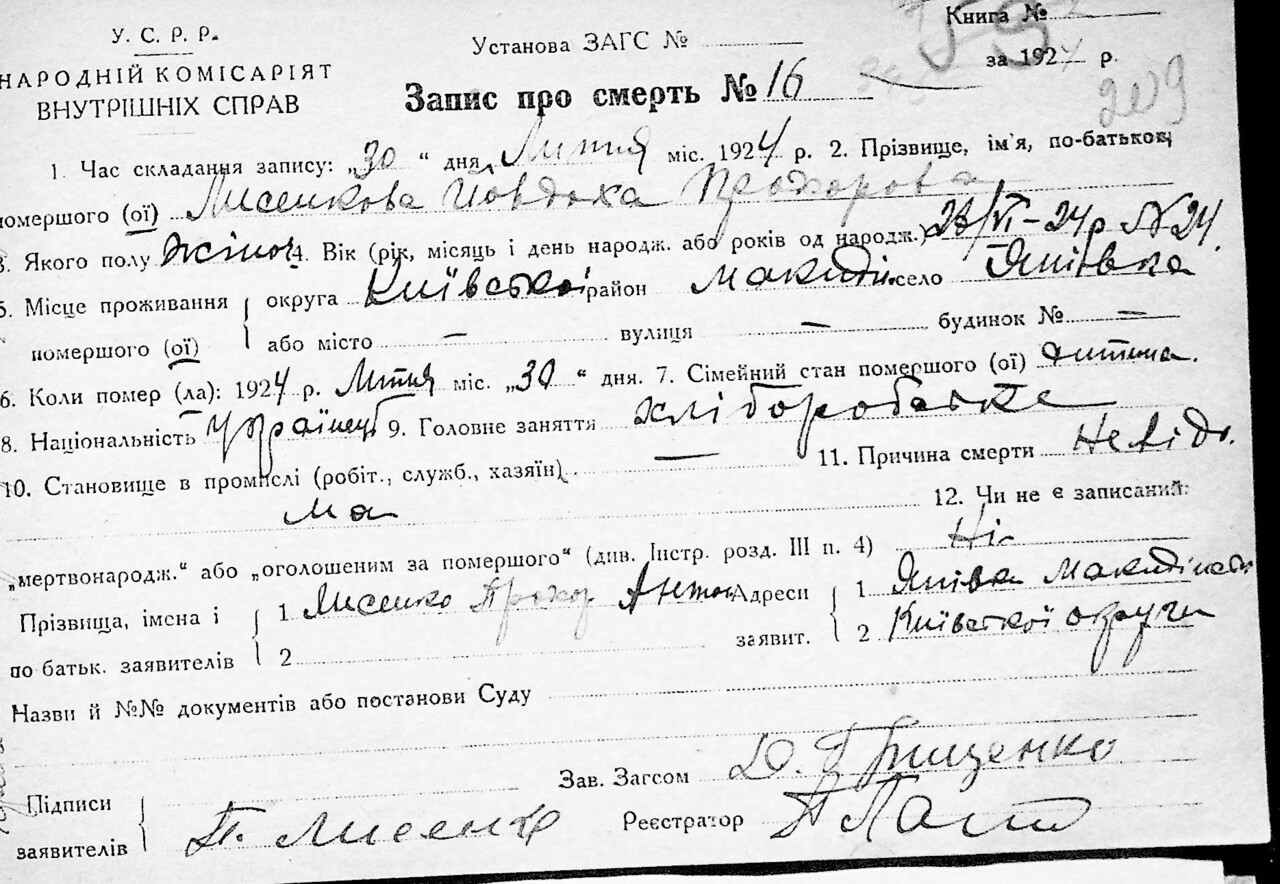 У. С. Р. Р.
НАРОДНІЙ КОМІСАРІЯТ
ВНУТРІШНІХ СПРАВ
Установа ЗАГС №
Книга №
за 1924 р.
209
Запис про смерть № 16
1. Час складання запису: „30 “ дня Липня міс. 1924 р. 2. Прізвище, ім'я, по-батькові
помершого (ої) Лисенкова Йовдоха Прохорова
3. Якого полу жіноч 4. Вік (рік, місяць і день народж. або років од народж.) /VI-24р N 24.
5. Місце проживання помершого (ої)
округа Київської район Макиді. село Янівка
або місто — вулиця — будинок № —
6. Коли помер (ла): 1924 р. Липня міс. „30 “ дня. 7. Сімейний стан помершого (ої) дитина.
8. Національність Українец 9. Головне заняття хліборобське
10. Становище в промислі (робіт., служб., хазяїн) — 11. Причина смерти Невідо.
ма 12. Чи не є записаний:
„мертвонародж.“ або „оголошеним за помершого“ (див. Інстр. розд. III п. 4) Ні
Прізвища, імена і по батьк. заявителів
1 Лисенко Прохор Антон
2
Адреси заявит.
1 Янівка
2 Київської округи
Назви й №№ документів або постанови Суду
Зав. Загсом Д. Грищенко
Підписи заявителів П. Лисенко
Реєстратор